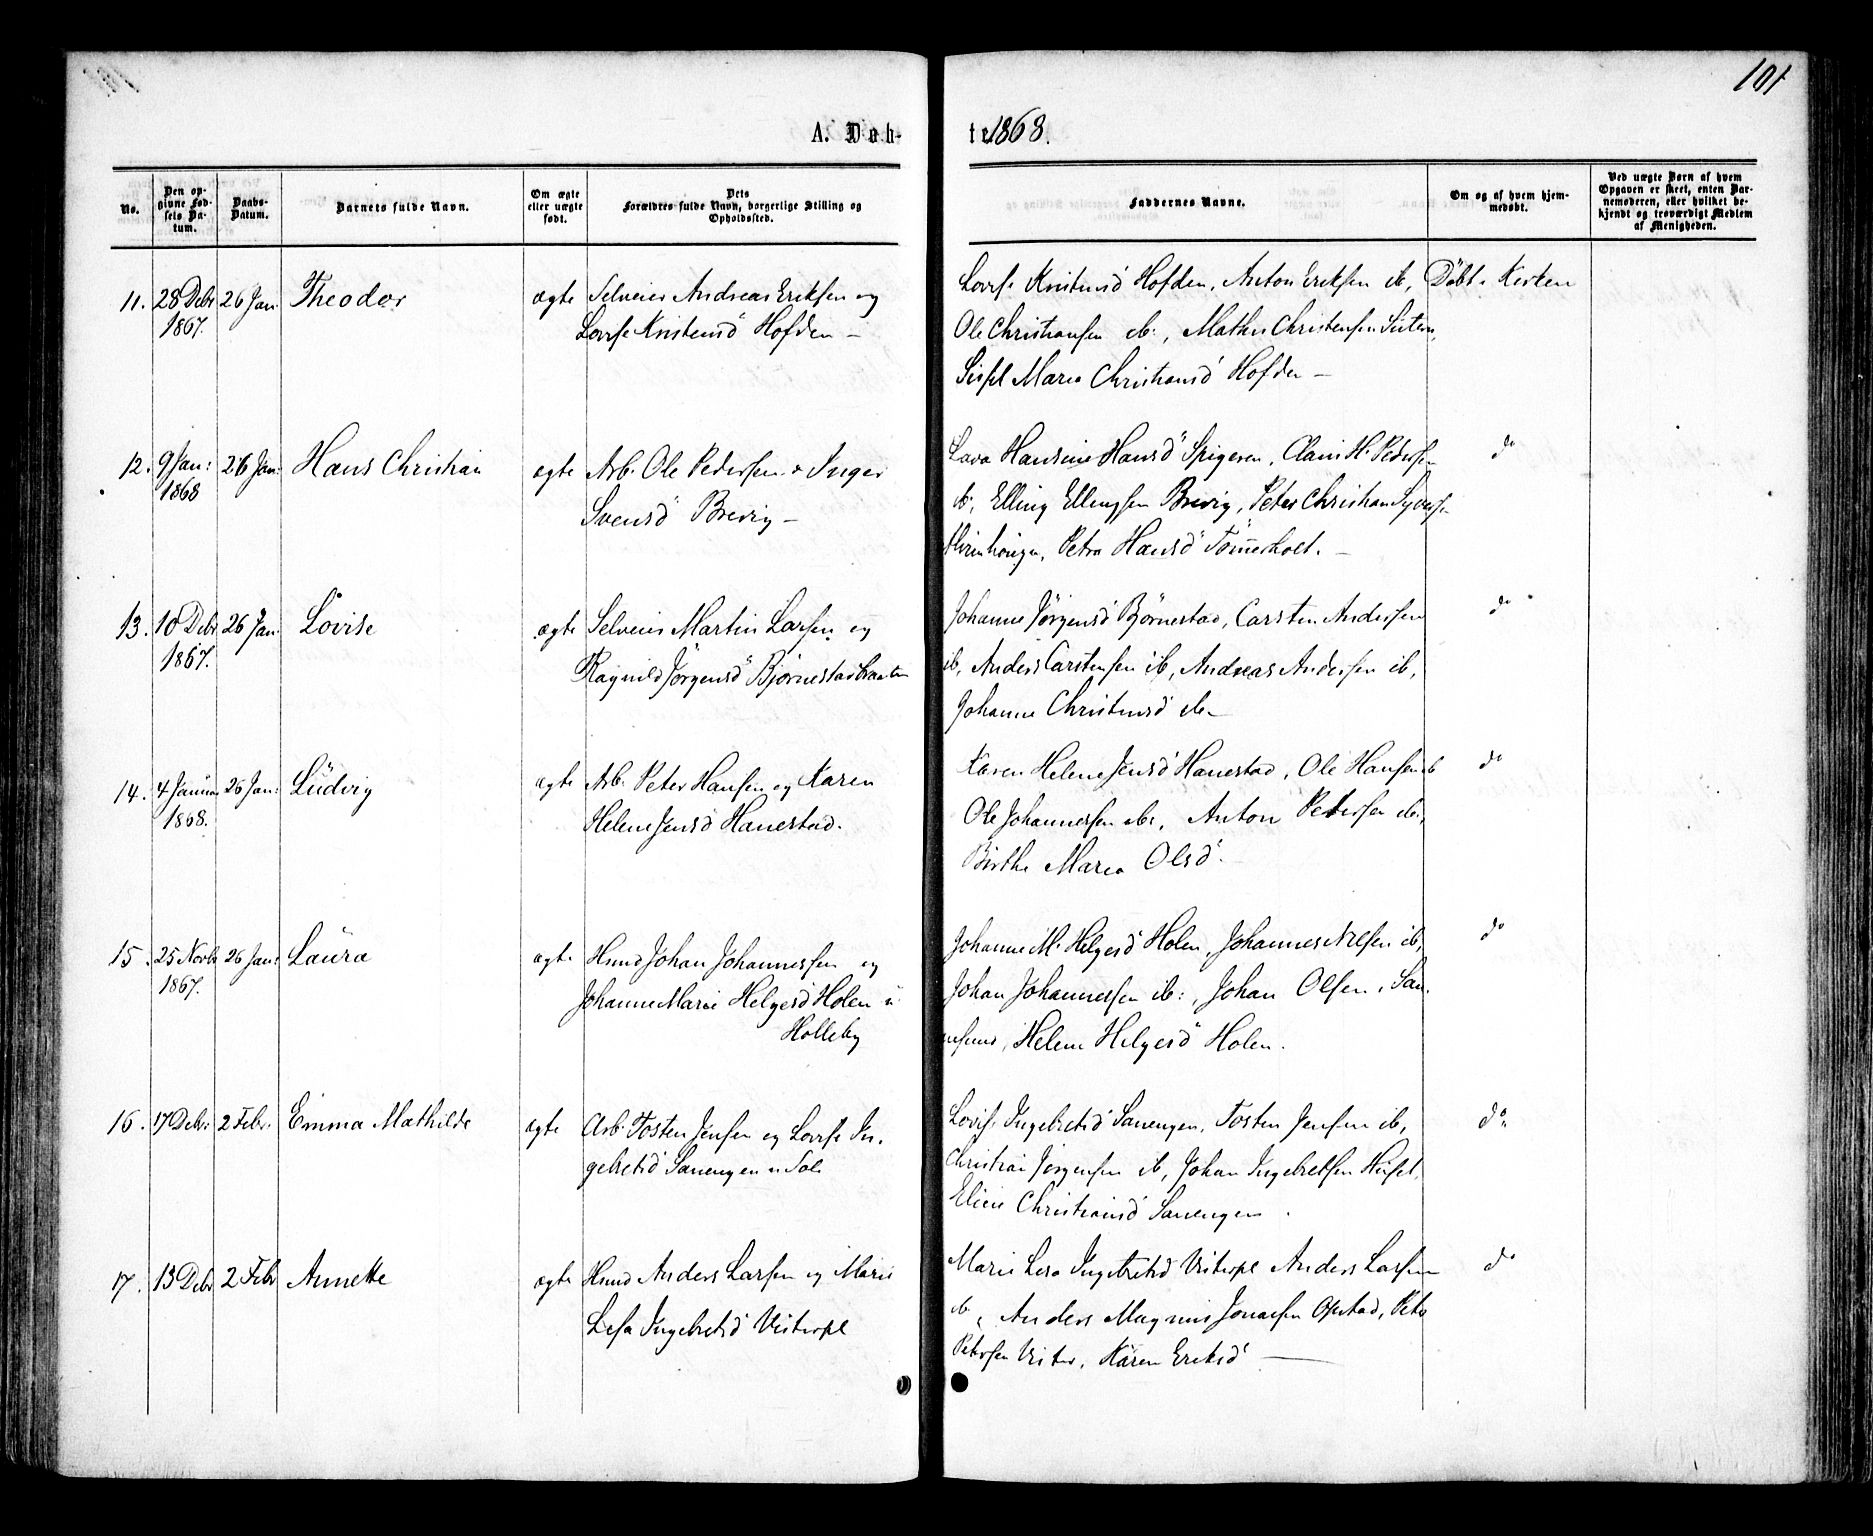 101
A. Døb-
te 1868.
No.
Den op-
givne Fød-
sels Da-
tum.
Daabs-
Datum.
Barnets fulde Navn.
Om ægte
eller uægte
født.
Dets
Forældres fulde Navn, borgerlige Stilling og
Opholdssted.
Faddernes Navne.
Om og af hvem hjem-
medøbt.
Ved uægte Børn af hvem
Opgaven er skeet, enten Bar-
nemoderen, eller hvilket be-
kjendt og troværdigt Medlem
af Menigheden.
11. 28 Debr 26 Jan Theodor ægte Selveier Andreas Eriksen og
1867.
Lovise Kristensd Hofden –
Lovise Kristensd Hofden, Anton Eriksen ib, Døbt i Kirken
Ole Christiansen ib:, Mathis Christensen
Maria Christiansd Hofden –
12. 9 Jan: 26 Jan: Hans Christian ægte Arb. Ole Pedersen & Inger
1868
Svensd Brevig –
Hansine Hansd Spigeren, H. Pedersen d°
ib, Elling Ellingsen Brevig, Peter Christian
Petra Hansd Tømmerholt. –
13. 10 Debr 26 Jan. Lovise ægte Selveier Martin Larsen og
1867.
Ragnild Jørgensd Bjørnestadbraaten
Johanne Jørgensd Bjørnestad, Carsten Andersen d°
ib, Anders Carstensen ib, Andreas Andersen ib,
Johanne Christensd ib –
14. 4 Januar 26 Jan: Ludvig ægte Arb. Peter Hansen og Karen
1868.
Helene Jensd Hanestad.
Karen Helene Jensd Hanestad, Ole Hansen ib d°
Ole Johannessen ib:, Anton Pedersen ib:,
Birthe Maria Olsd.
15. 25 Novbr 26 Jan: Laura ægte Husmd Johan Johannessen og
1867.
Johanne Marie Helgesd Holen u.
Holleby
Johanne M. Helgesd Holen, Johannes Nilsen ib, d°
Johan Johannessen ib:, Johan Olsen,
Helene Helgesd Holen.
16. 17 Debr: 2 Febr. Emma Mathilde ægte Arb. Tosten Jensen og Lovise In-
gebretsd Sanengen u. Soli
Lovise Ingebretsd Sanengen, Tosten Jensen ib, d°
Christian Jørgensen ib, Johan Ingebretsen
Christiansd Sanengen.
17. 13 Debr 2 Febr Annette ægte Husmd Anders Larsen og Marie
Lisa Ingebretsd Visterpl
Marie Lisa Ingebretsd Visterpl Anders Larsen d°
ib, Anders Magnus Jonassen Opstad, Peter
Petersen Vister, Karen Eriksd –